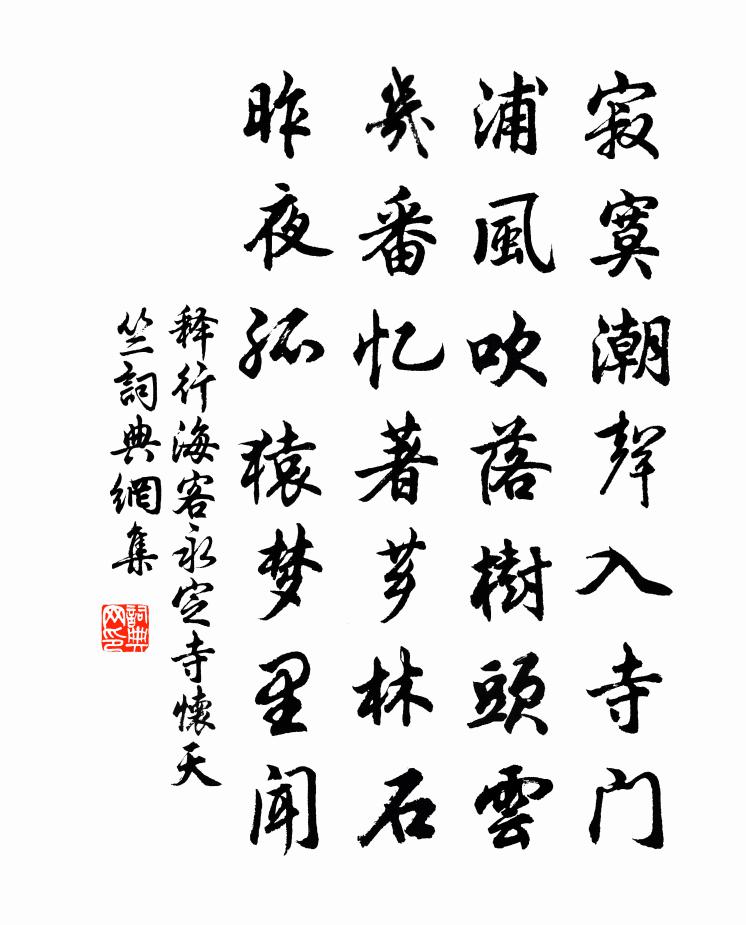 寂寞潮聲入寺门
浦風吹落樹頭雲
幾番忆著芗林石
昨夜孤猿梦里闻
释行海客永定寺懷天
竺詞典網集
詞典
网印